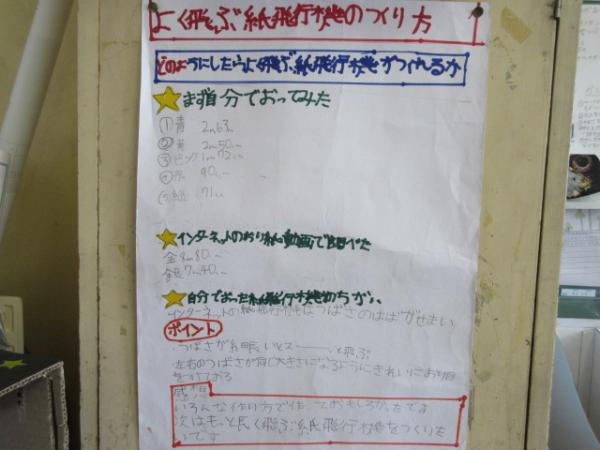 よく飛ぶ紙飛行機のつくり方
どのようにしたらよく飛ぶ紙飛行機がつくれるか
まず自分でおってみた
①青 2m63cm
②黄 2m50cm
③ピンク1m72cm
④水 90cm
⑤紺 71cm
インターネットのおり紙動画で調べた
金8m80cm
銀7m40cm
自分でおった紙飛行機のちがい
インターネットの紙飛行機はつばさのはばがせまい
ポイント
つばさが細長いとスーーーと飛ぶ
左右のつばさが同じ大きさになるようにきれいにおり目
をつけておる
感想
いろんな作り方で作っておもしろかったです
次はもっと長く飛ぶ紙飛行機をつくりた
いです